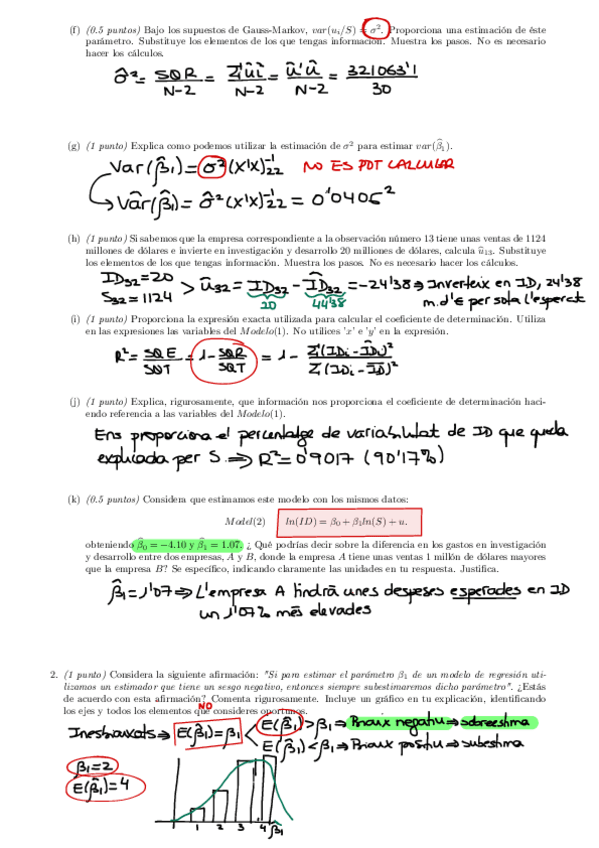 (f) (0.5 puntos) Bajo los supuestos de Gauss-Markov, var(uᵢ/S) = σ². Proporciona una estimación de éste
parámetro. Substituye los elementos de los que tengas información. Muestra los pasos. No es necesario
hacer los cálculos.
σ̂² = SQR/N-2 = Σûᵢ²/N-2 = û'û/N-2 = 321063'1/30
(g) (1 punto) Explica como podemos utilizar la estimación de σ² para estimar var(β̂₁).
Var(β̂₁) = σ²(X'X)⁻¹₂₂ NO ES POT CALCULAR
V̂ar(β̂₁) = σ̂²(X'X)⁻¹₂₂ = 0'0405²
(h) (1 punto) Si sabemos que la empresa correspondiente a la observación número 13 tiene unas ventas de 1124
millones de dólares e invierte en investigación y desarrollo 20 millones de dólares, calcula û₁₃. Substituye
los elementos de los que tengas información. Muestra los pasos. No es necesario hacer los cálculos.
ID₃₂ = 20
S₃₂ = 1124 > û₃₂ = ID₃₂ - ÎD₃₂ = -24'38 ⇒ Inverteix en ID, 24'38
20 44'38 m.d'€ per sota l'esperat
(i) (1 punto) Proporciona la expresión exacta utilizada para calcular el coeficiente de determinación. Utiliza
en las expresiones las variables del Modelo(1). No utilices 'x' e 'y' en la expresión.
R² = SQE/SQT = 1 - SQR/SQT = 1 - Σ(IDᵢ - ÎDᵢ)²/Σ(IDᵢ - I̅D̅)²
(j) (1 punto) Explica, rigurosamente, que información nos proporciona el coeficiente de determinación haci-
endo referencia a las variables del Modelo(1).
Ens proporciona el percentatge de variabilitat de ID que queda
explicada per S. ⇒ R² = 0'9017 (90'17%)
(k) (0.5 puntos) Considera que estimamos este modelo con los mismos datos:
Model(2) ln(ID) = β₀ + β₁ln(S) + u.
obteniendo β̂₀ = −4.10 y β̂₁ = 1.07. ¿ Qué podrías decir sobre la diferencia en los gastos en investigación
y desarrollo entre dos empresas, A y B, donde la empresa A tiene unas ventas 1 millón de dólares mayores
que la empresa B? Se específico, indicando claramente las unidades en tu respuesta. Justifica.
β̂₁ = 1'07 ⇒ L'empresa A tindrà unes despeses esperades en ID
un 1'07% més elevades
2. (1 punto) Considera la siguiente afirmación: "Si para estimar el parámetro β₁ de un modelo de regresión uti-
lizamos un estimador que tiene un sesgo negativo, entonces siempre subestimaremos dicho parámetro". ¿Estás
de acuerdo con esta afirmación? Comenta rigurosamente. Incluye un gráfico en tu explicación, identificando
los ejes y todos los elementos que consideres oportunos.
NO
Inesbiaixats ⇒ E(β̂₁) = β₁ < E(β̂₁) > β₁ ⇒ Biaix negatiu ⇒ sobreestima
E(β̂₁) < β₁ ⇒ Biaix positiu ⇒ subestima
β₁ = 2
E(β̂₁) = 4
1 2 3 4 β̂₁